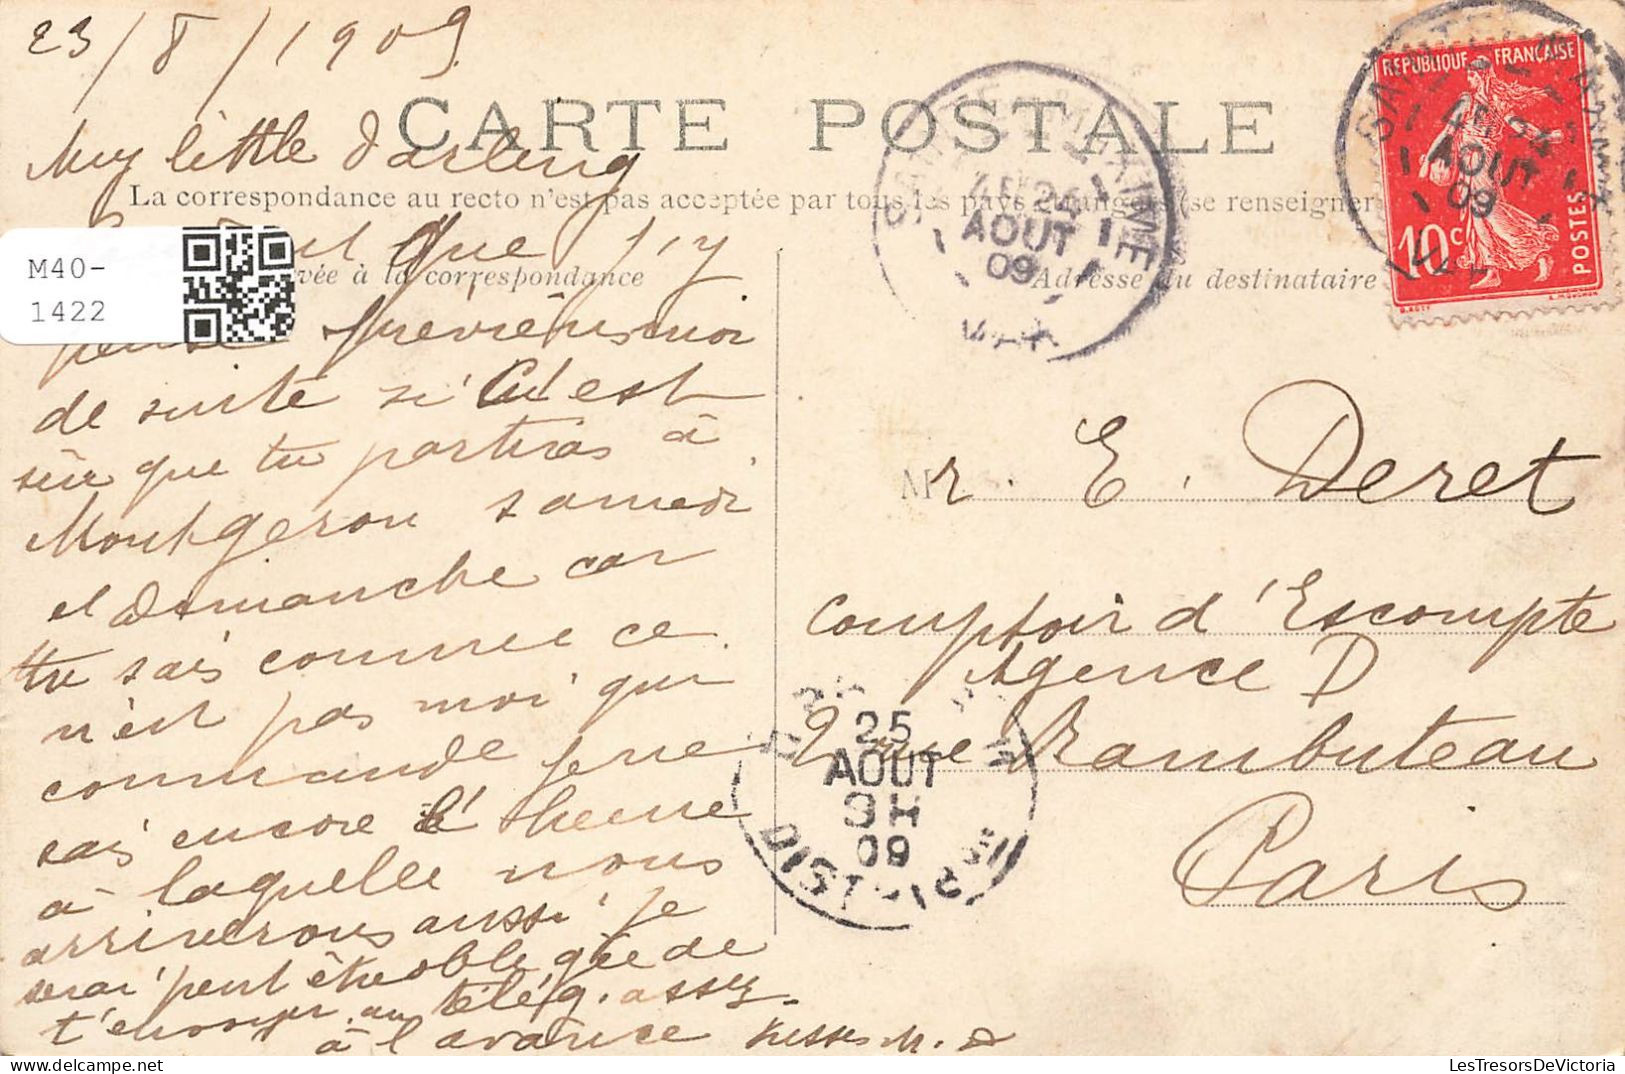 23/8/1909
CARTE POSTALE
My little darling
La correspondance au recto n'est pas acceptée par tous les pays étrangers (se renseigner
que j'y
vée à la correspondance
Adresse du destinataire
M40-
1422
préviens moi
de suite si c'est
sûr que tu partiras à
Montgeron samedi
et Dimanche car
tu sais comme ce
n'est pas moi qui
commande je ne
sais encore l'heure
à laquelle nous
arriverons aussi je
serai peut être obligée de
t'envoyer un télég. assez
à l'avance Kisses M. D
REPUBLIQUE FRANÇAISE
10c
POSTES
SAINTE-MAXIME
4E 24
AOUT
09
VAR
SAINTE-MAXIME
4E 24
AOUT
09
VAR
Mr. E. Deret
Comptoir d'Escompte
Agence D
2 rue Rambuteau
Paris
25
AOUT
9H
09
LesTresorsDeVictoria